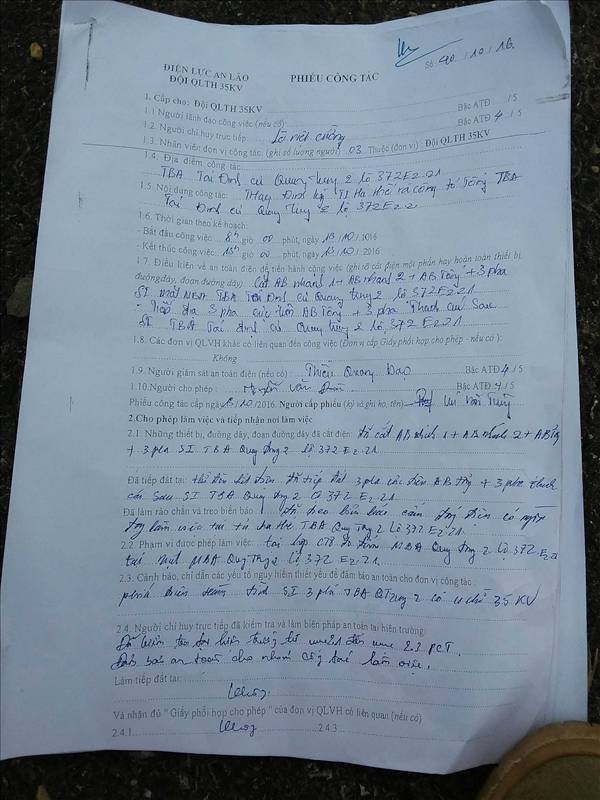 ĐIỆN LỰC AN LÃO
ĐỘI QLTH 35KV
PHIẾU CÔNG TÁC
Số: 90 / 10 / 16
1. Cấp cho: Đội QLTH 35KV
1.1 Người lãnh đạo công việc (nếu có) Bậc ATĐ /5
1.2. Người chỉ huy trực tiếp: Bậc ATĐ 4 /5
1.3. Nhân viên đơn vị công tác: (ghi số lượng người) 03 Thuộc (đơn vị) Đội QLTH 35KV
1.4. Địa điểm công tác
TBA Tái Định cư Quang Trung 2 lộ 372E2.21
1.5. Nội dung công tác: Thay Định kỳ TI Hạ thế và công tơ tổng TBA
Tái Định cư Quang Trung 2 lộ 372E2.2
1.6. Thời gian theo kế hoạch:
- Bắt đầu công việc: 8h giờ 00 phút, ngày 13/10/2016
- Kết thúc công việc: 15h giờ 00 phút, ngày 13/10/2016
1.7. Điều kiện về an toàn điện để tiến hành công việc (ghi rõ cắt điện một phần hay hoàn toàn thiết bị,
đường dây, đoạn đường dây) Cắt AB nhánh 1 + AB nhánh 2 + AB Tổng + 3 pha
SI TBA Tái Định cư Quang trung 2 lộ 372E2.21
- Tiếp địa 3 pha cực AB Tổng + 3 pha Thanh cái Sau
SI TBA Tái định cư Quang trung 2 lộ 372 E2.21
1.8. Các đơn vị QLVH khác có liên quan đến công việc (Đơn vị cấp Giấy phối hợp cho phép - nếu có):
Không
1.9. Người giám sát an toàn điện (nếu có): Thiều Quang Đạo Bậc ATĐ 4 /5
1.10.Người cho phép: Nguyễn Văn Bậc ATĐ: 4 /5
Phiếu công tác cấp ngày /10/2016. Người cấp phiếu (ký và ghi họ, tên)
2.Cho phép làm việc và tiếp nhận nơi làm việc
2.1. Những thiết bị, đường dây, đoạn đường dây đã cắt điện: Đã cắt AB nhánh 1 + AB nhánh 2 + AB Tổng
+ 3 pha SI TBA Quang Trung 2 lộ 372 E2.21
Đã tiếp đất tại: đã tiếp đất 3 pha AB tổng + 3 pha thanh
cái sau SI TBA Quang Trung 2 lộ 372 E2.21
Đã làm rào chắn và treo biển báo: đã treo biển báo cấm đóng điện có người
đang làm việc tại tủ hạ thế TBA Quang Trung 2 lộ 372 E2.21
2.2. Phạm vi được phép làm việc: MBA Quang Trung 2 lộ 372 E2.21
MBA Quang Trung 2 lộ 372 E2.21.
2.3. Cảnh báo, chỉ dẫn các yếu tố nguy hiểm thiết yếu để đảm bảo an toàn cho đơn vị công tác:
phía trên SI 3 pha TBA QTrung 2 có 35 KV
2.4. Người chỉ huy trực tiếp đã kiểm tra và làm biện pháp an toàn tại hiện trường:
Đã kiểm tra tại hiện trường từ mục 2.1 đến mục 2.3 PCT.
đảm bảo an toàn cho nhóm công tác làm việc.
Làm tiếp đất tại:
Không
Và nhận đủ " Giấy phối hợp cho phép " của đơn vị QLVH có liên quan (nếu có)
2.4.1 Không 2.4.3